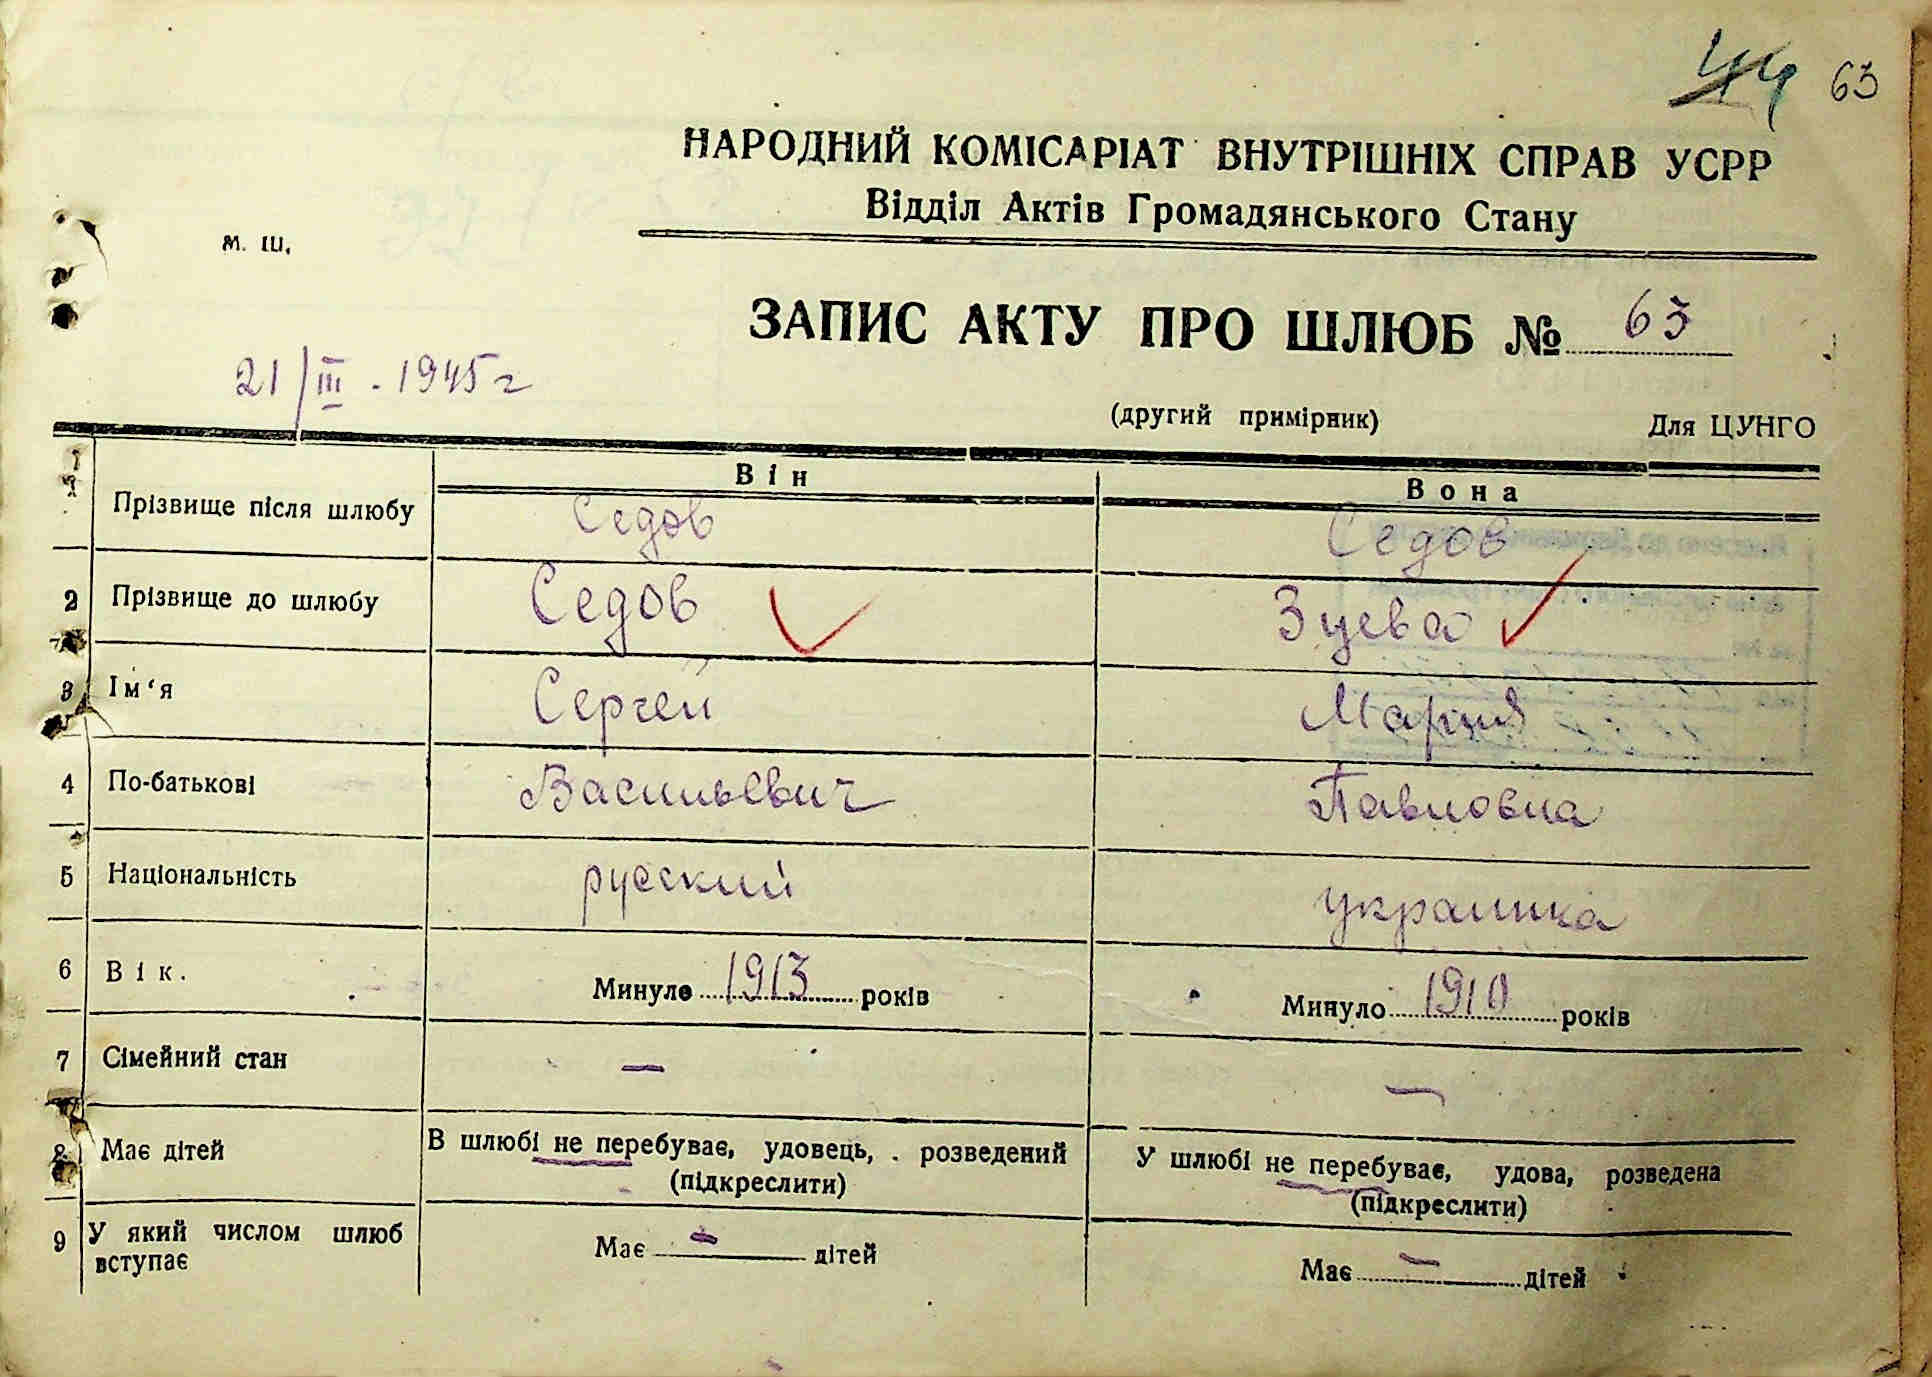 44 63
НАРОДНИЙ КОМІСАРІАТ ВНУТРІШНІХ СПРАВ УСРР
Відділ Актів Громадянського Стану
м. ш.
ЗАПИС АКТУ ПРО ШЛЮБ № 63
21/III. 1945 г
(другий примірник) Для ЦУНГО
Він Вона
1 Прізвище після шлюбу Седов Седов
2 Прізвище до шлюбу Седов Зуева
3 Ім‘я Сергей Мария
4 По-батькові Васильевич Павловна
5 Національність русский украинка
6 Вік. Минуло 1913 років Минуло 1910 років
7 Сімейний стан — —
8 Має дітей В шлюбі не перебуває, удовець, розведений У шлюбі не перебуває, удова, розведена
(підкреслити) (підкреслити)
9 У який числом шлюб вступає Має — дітей Має — дітей